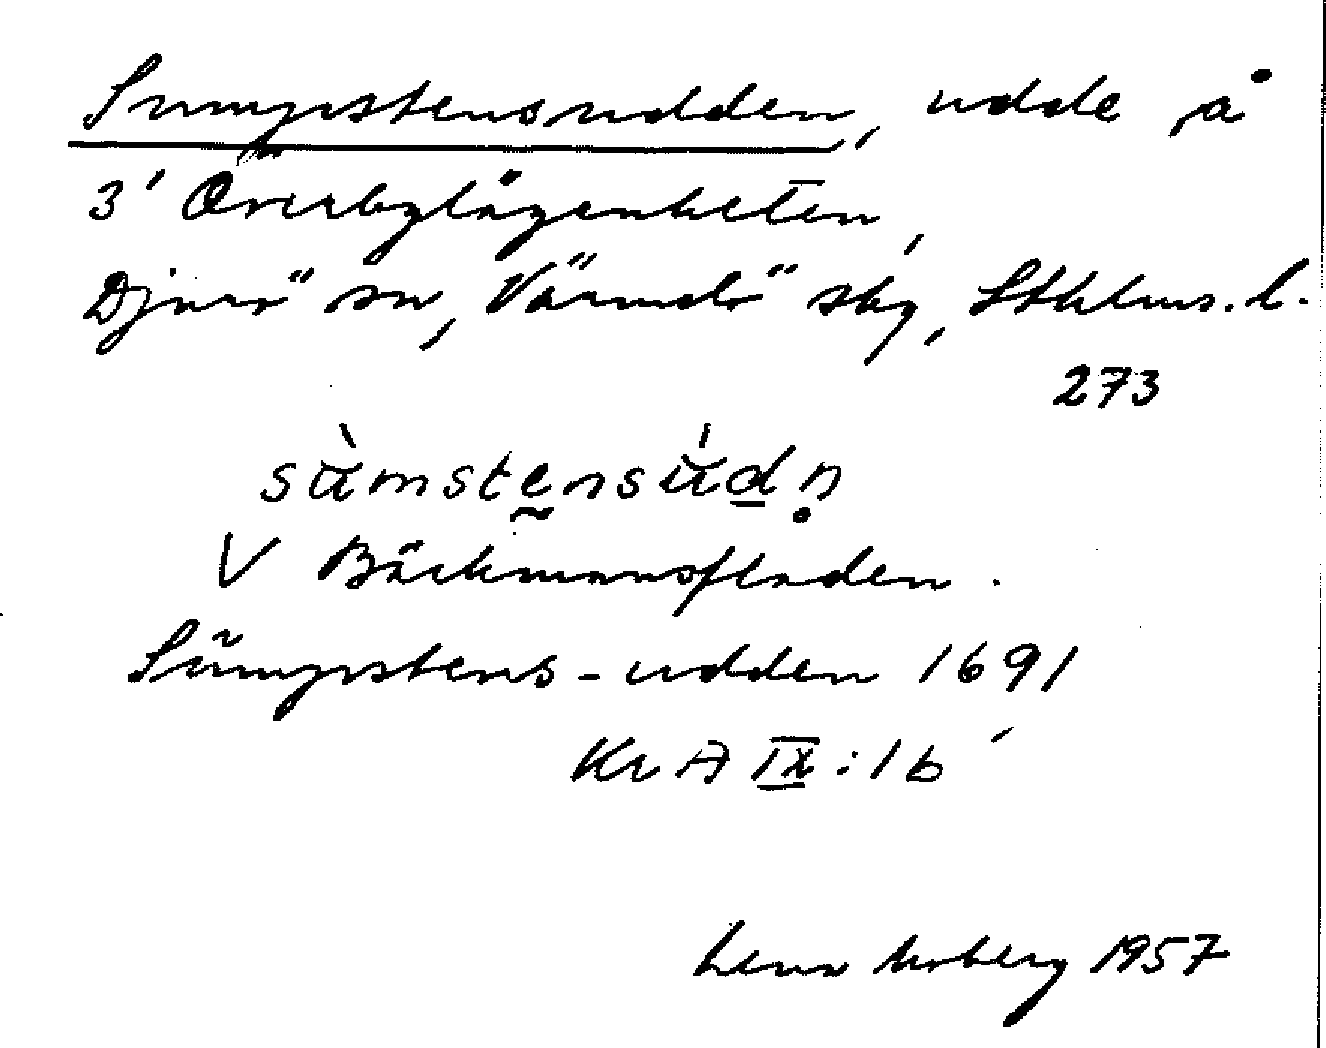 Sumpstensudden, udde å
3' Överbylägenheten,
Djurö sn, Värmdö skg, Sthlms. l.
273
sùmstensúdn
V Bäckmansfladen.
Sŭmpstens-udden 1691
Kr A IX:1b
Lena Moberg 1957